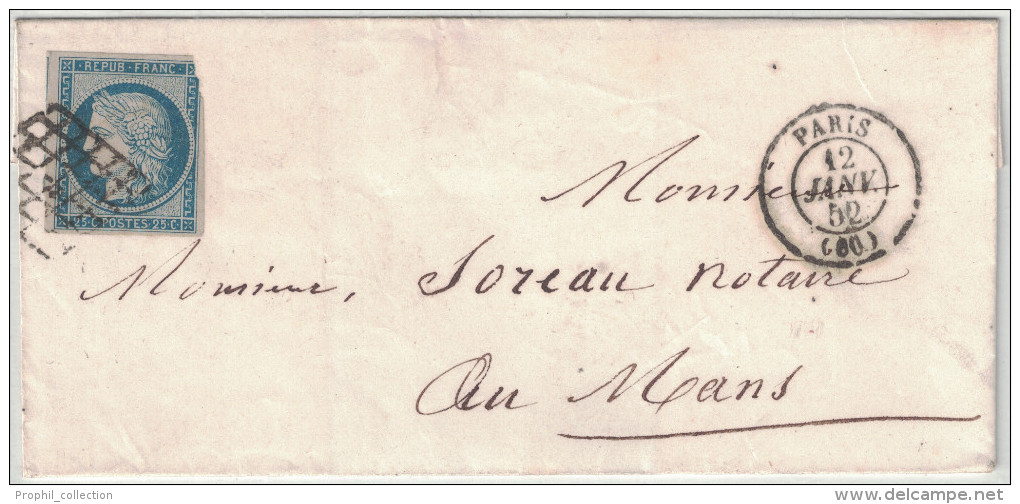 REPUB·FRANC·
25·C·POSTES·25·C·
PARIS
12
JANV.
52
(60)
Monsieur
Monsieur, Soreau notaire
Au Mans
Prophil_collection
www.delcampe.net